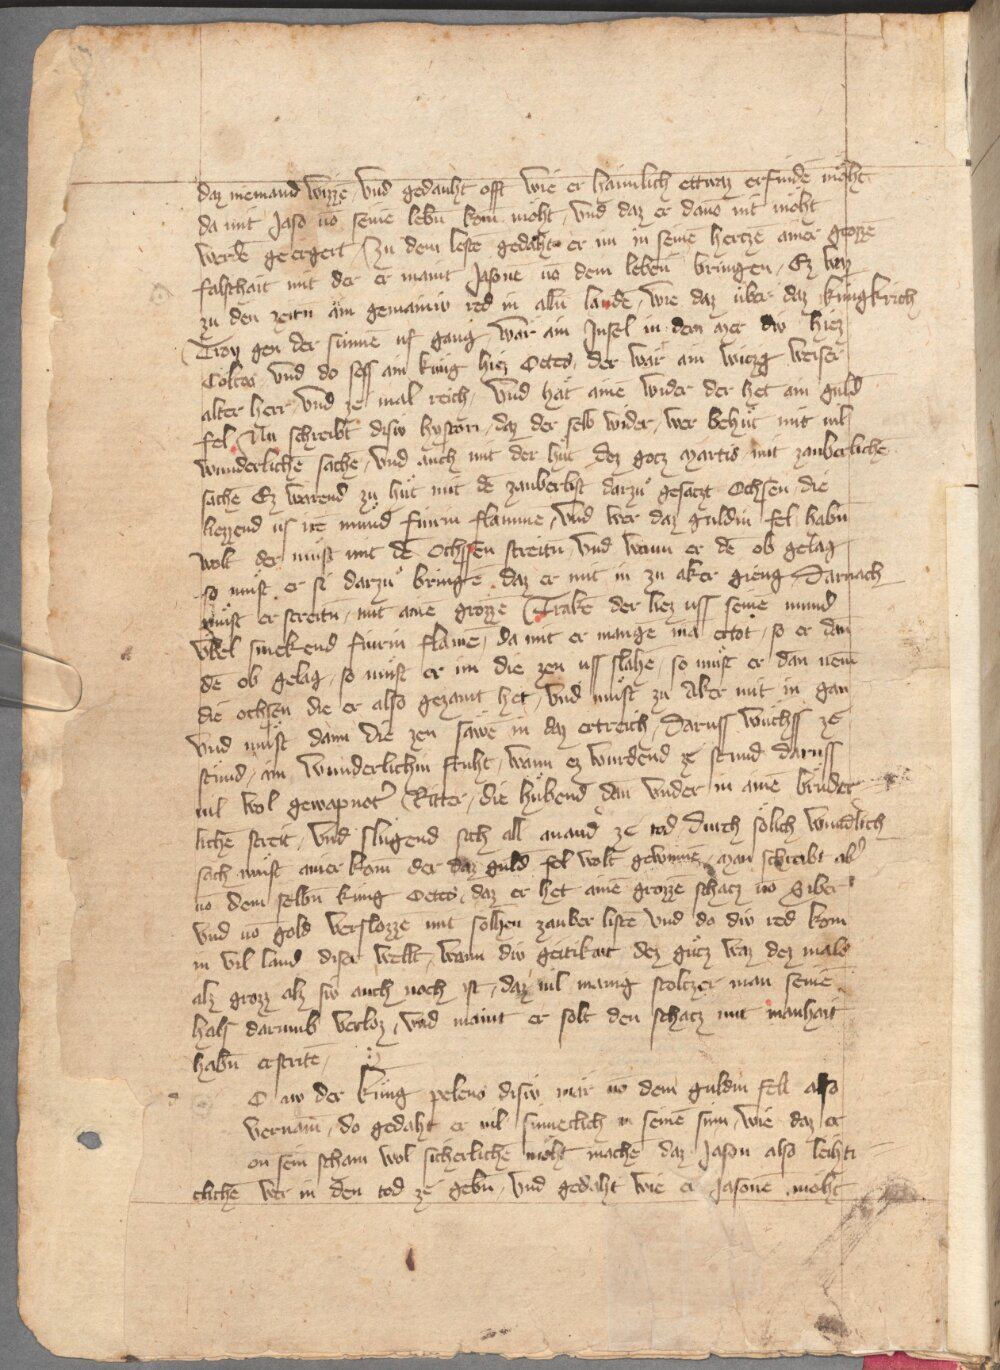 daz niemand wizze / vnd gedauht offt wie er haimlich ettwaz erfindē möht
da mit Jaso uō seinē lebn̄ kom̄ möht / vnd daz er dauō nit möht
werdē geergert / Zu dem lestē gedaht er im in seinē hertzē ainer grozzē
falschait mit der er maint Jasone uō dem lebēn bringen / Ez waz
zu den zeitn̄ ain gemainiv red in allē lande / wie daz über daz küngkrich
Troy gen der sunnē uf gang / wär ain Jnsel in dem mer div hiez
Colcos / vnd do sezz ain küng hiez Oetes / der wär ain witzg weiser
alter herr / vnd ze mal reich / vnd hät ainē wider der het ain guld
fel / Nu schreibt disiv hystori / daz der selb wider / wer behüt mit uil
wunderlichē sachē / vnd auch mit der hüt dez gotz Martis / mit zauberlichē
sachē Ez warend zu hüt mit dē zauberlist darzů gesatzt Ochsen / die
liezzend us irē mund fiurin flamme / vnd wer daz guldin fel / habn̄
wolt der must mit dē Ochssen streitn̄ / vnd wann er dē ob gelag
so must er si darzů bringē daz er mit in zu aker gieng Darnach
must er streitn̄ / mit ainē grozzē Trakē der liez uss seinē mund
übel smekend fiurin flāme / da mit er mangē mā ertot / so er dan
dē ob gelag / so must er im die zen uss slahē / so must er dan nem̄
die ochsen die er also gezamt het / vnd must zu Aker mit in gan
vnd must dann die zen säwē in daz ertreich / Daruss wuchss ze
stund / ain wunderlichiu fruht / wann ez wurdend ze stund daruss
uil wol gewapnoter Ritter / die hubend dan vnder in ainē brüder
lichē streit / vnd slugend sich all anand̄ ze tod / durch sölich wundlich
sach must ainer kom̄ der daz guld fel wolt gewinnē / Man schreibt ab͛
uō dem selbn̄ küng Oetes / daz er het ainē grozzē schatz uō Silber
vnd uō gold verslozzē mit solhen zauber listē vnd do div red kom
in uil land diser wellt / wann div geitikait dez gutz waz dez mals
alz grozz alz siv auch noch ist / daz uil mang stoltzer man seinē
hals darumb verloz / vnd maint er solt den schatz mit manhait
habn̄ erstritē /
Do aw der küng peleus disiv mär uō dem guldin fell also
vernam̄ / do gedaht er uil sinneclich in seinē sinn / wie daz er
on sein scham wol sicherlichē möht machē daz Jason also leihti
clichē wer in den tod ze gebn̄ / vnd gedaht wie er Jasonē möht